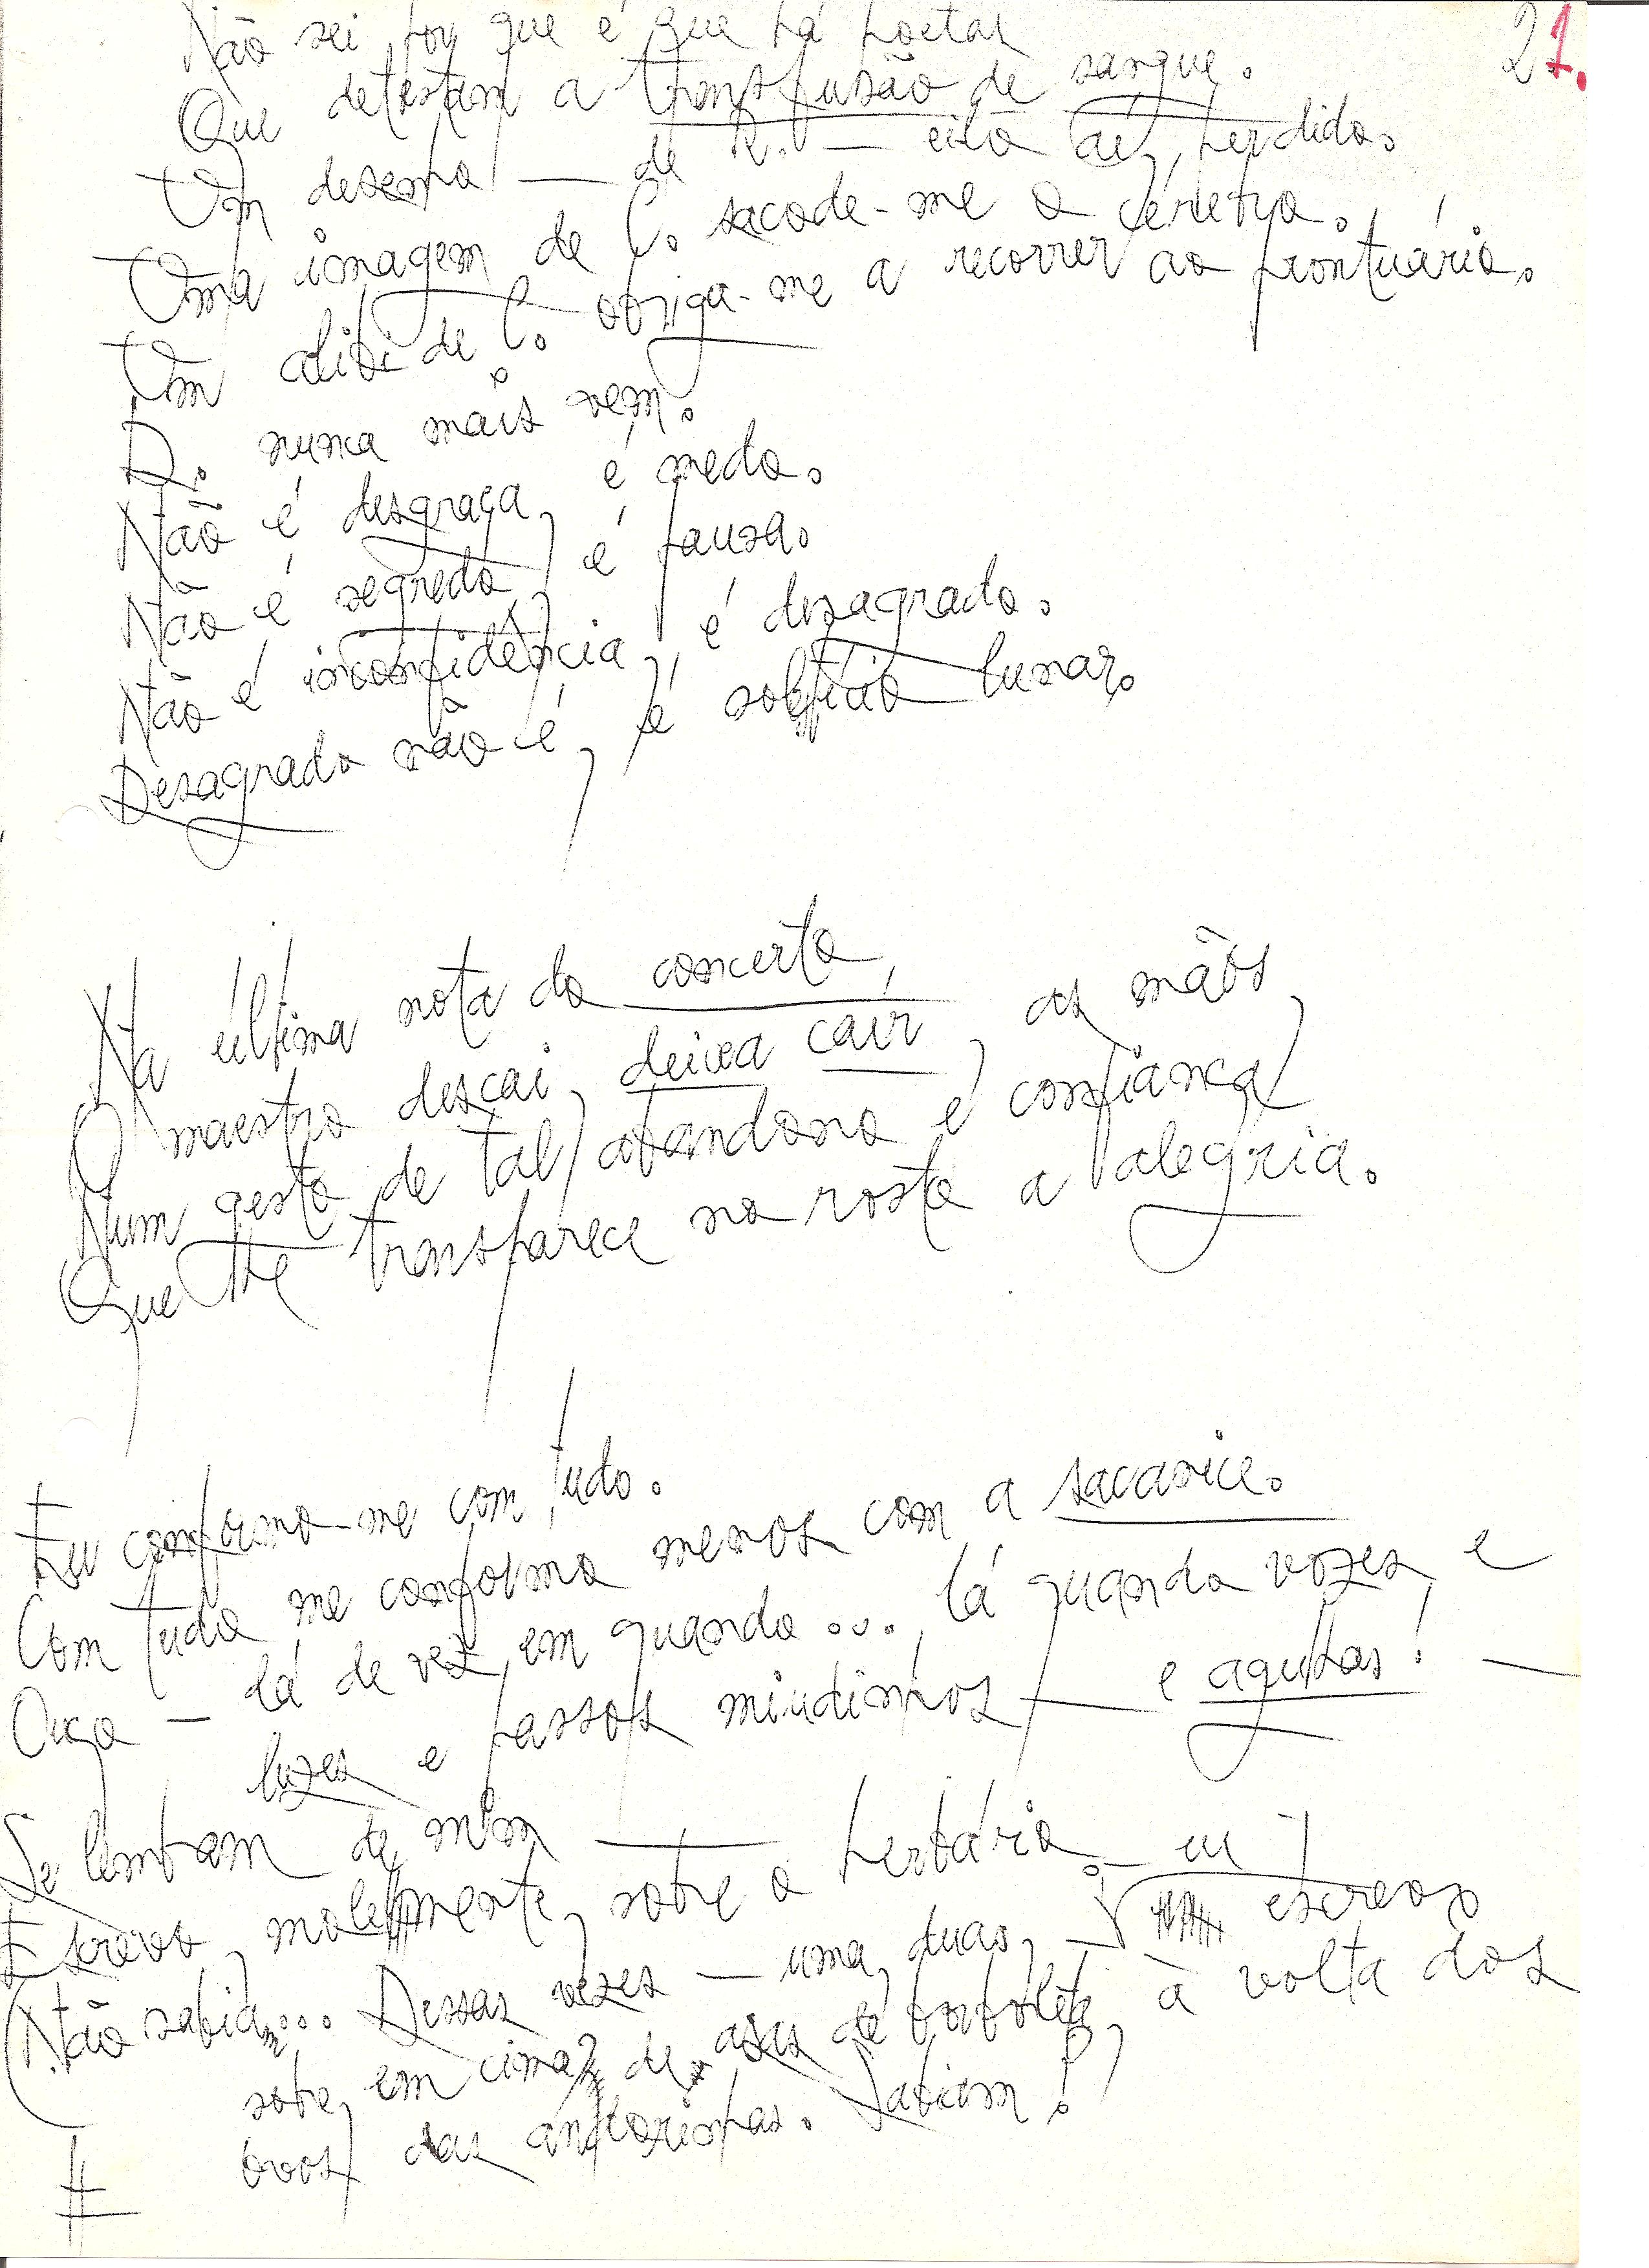 21.
Não sei por que é que há poetas
Que detestam a transfusão de sangue.
Um desenho — de R. — ei-lo aí, perdido.
Uma imagem de C. sacode-me o cérebro.
Um álibi de C. obriga-me a recorrer ao prontuário.
D. nunca mais vem.
Não é desgraça, é medo.
Não é segredo, é pausa.
Não é inconfidência, é desagrado.
Desagrado não é, é solstício lunar.
Na última nota do concerto,
O maestro descai, deixa cair, as mãos,
Num gesto de tal abandono e confiança
Que lhe transparece no rosto a alegria.
Eu conformo-me com tudo.
Com tudo me conformo menos com a sacarice.
Ouço — lá de vez em quando... lá quando vozes, e
luzes e passos miudinhos — e agulhas! —
Se lembram de mim — sobre o herbário
Escrevo, molemente, sobre o herbário — eu
(Não sabiam... Dessas vezes — uma, duas, escrevo
sobre, em cima, de asas de borboleta, à volta dos
ovos das andorinhas. Sabiam?)